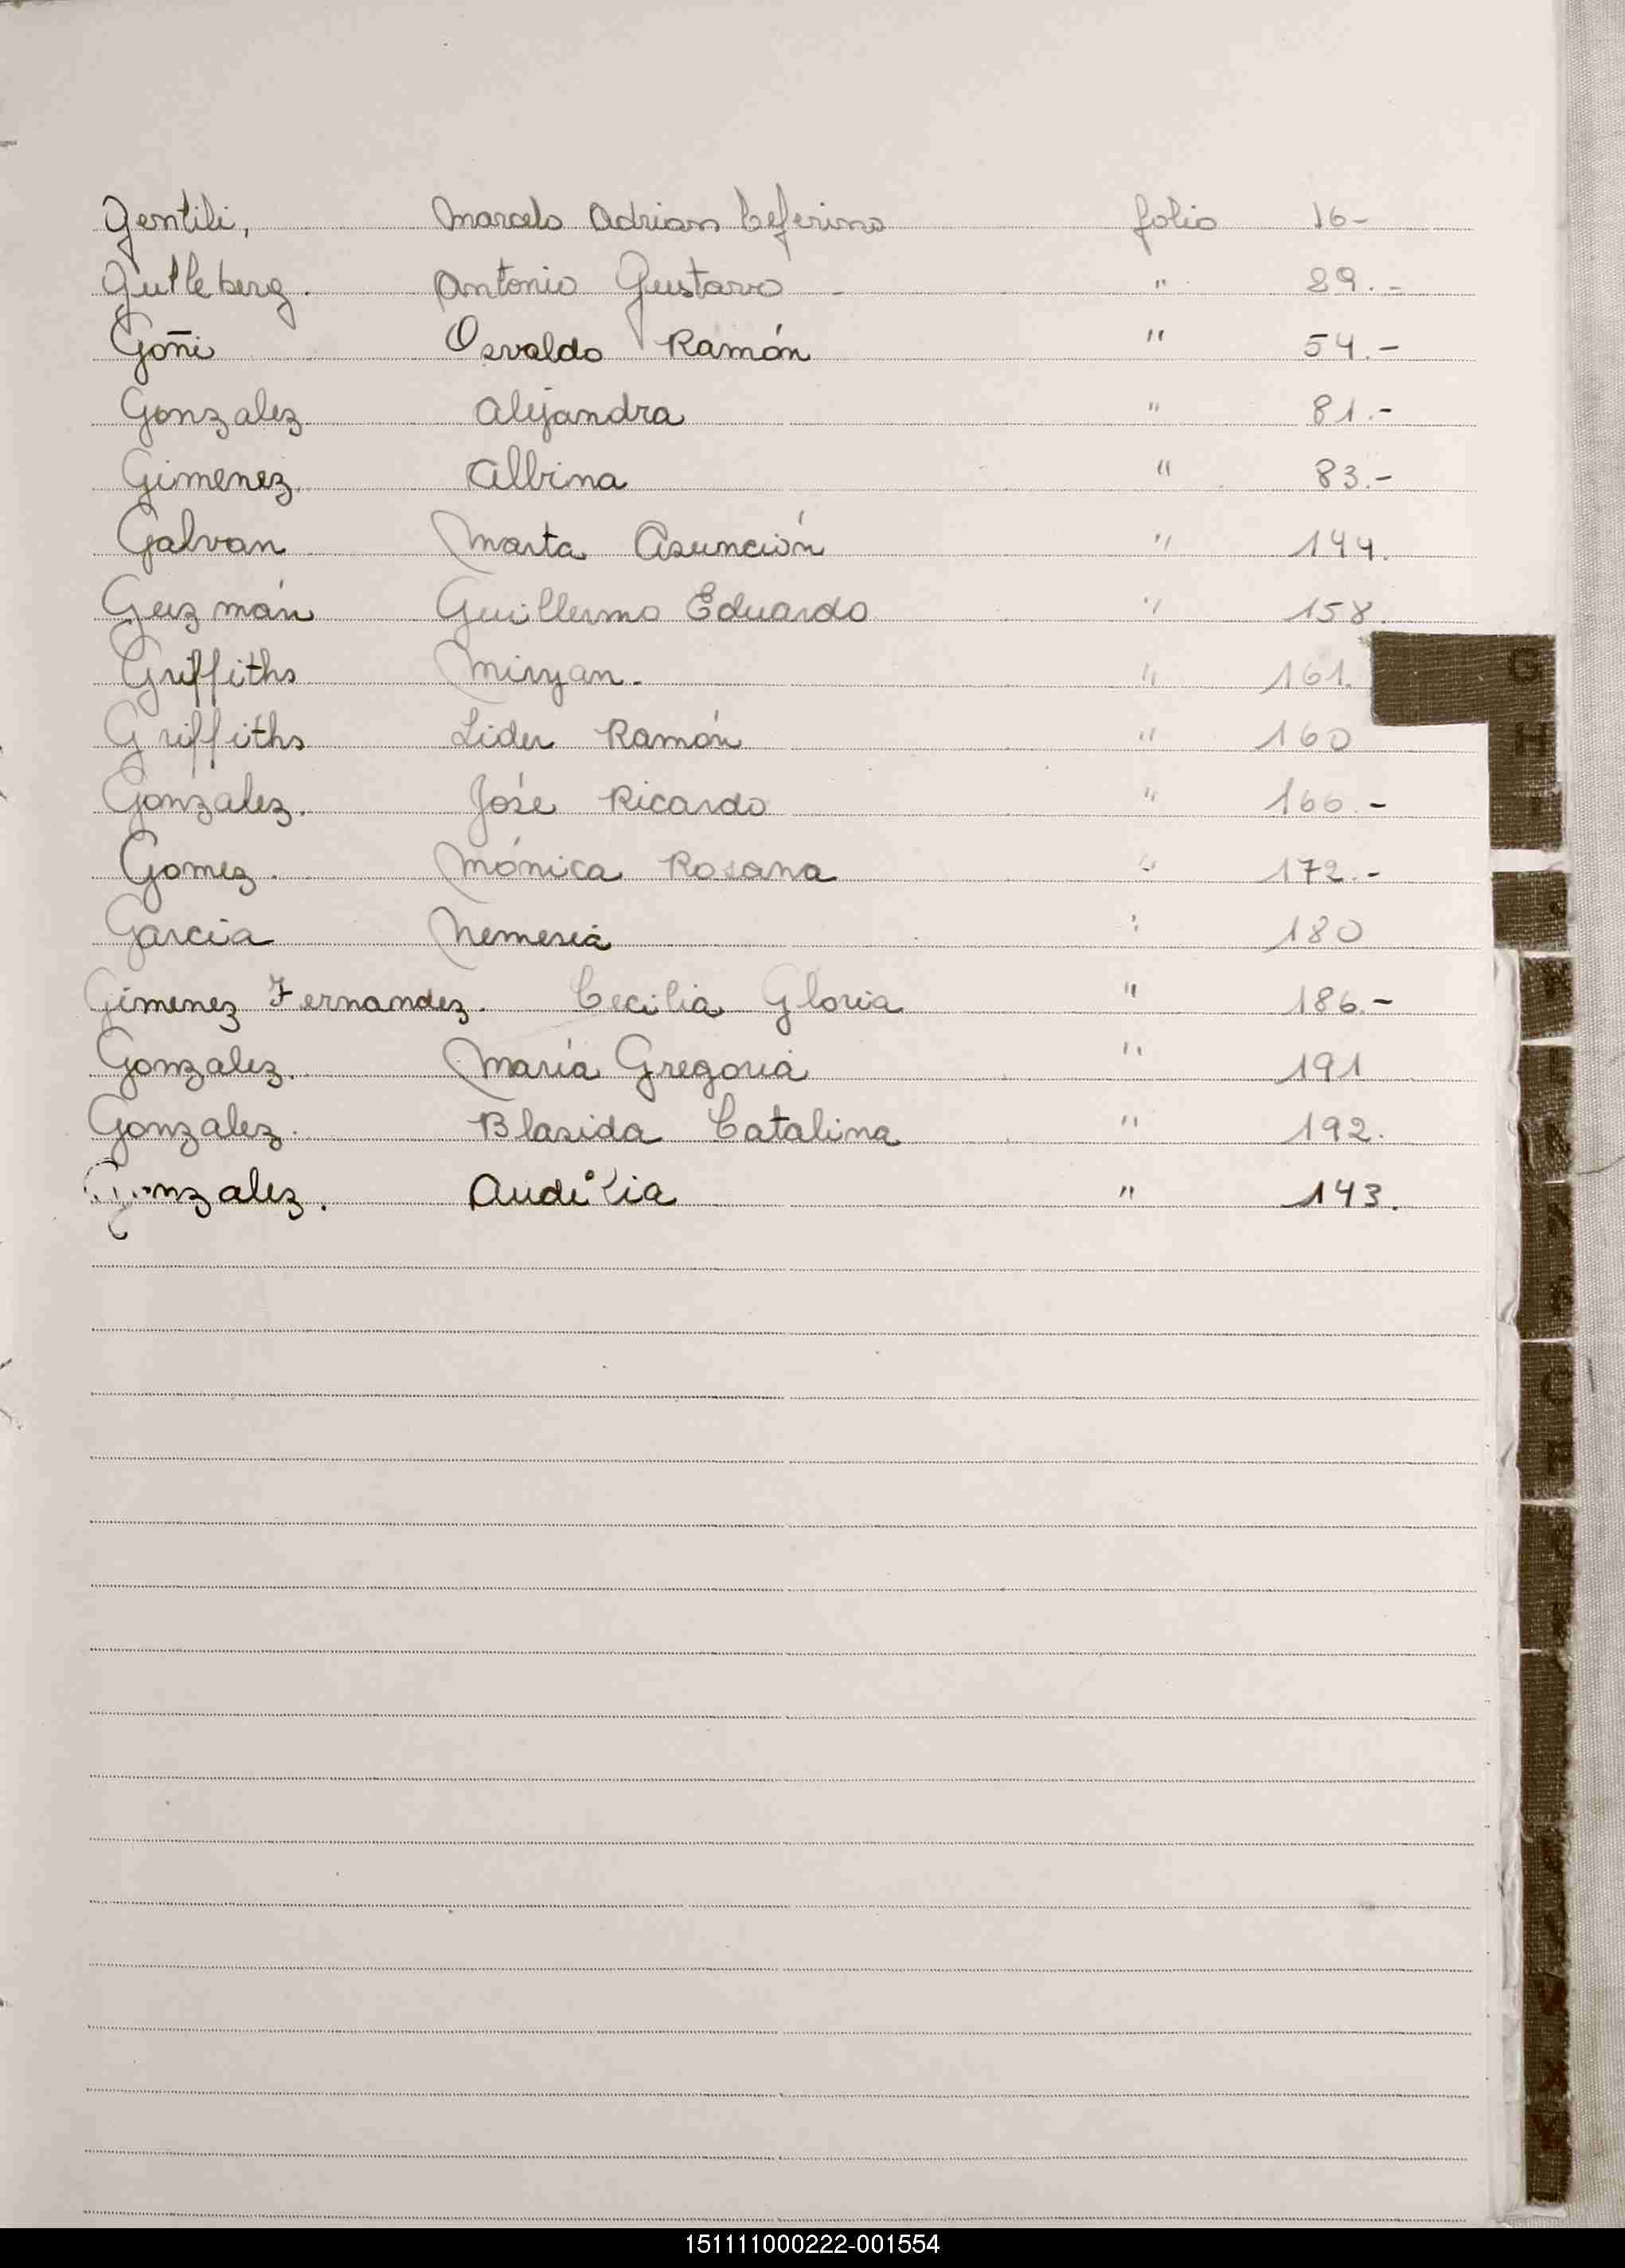 Gentili, Marcelo Adrian Ceferino folio 16-
Gutleberg. Antonio Gustavo - " 29.-
Goñi Osvaldo Ramón " 54.-
Gonzalez Alejandra " 81.-
Gimenez. Albina " 83.-
Galvan Marta Asunción " 144.
Guzmán Guillermo Eduardo " 158.
Griffiths Miryan. " 161.
Griffiths Lider Ramón " 160
Gonzalez. José Ricardo " 166.-
Gomez. Mónica Rosana " 172.-
Garcia Nemesia " 180
Gimenez Fernandez. Cecilia Gloria " 186.-
Gonzalez. María Gregoria " 191
Gonzalez. Blasida Catalina " 192.
Gonzalez. Audelia " 143.
G
H
151111000222-001554